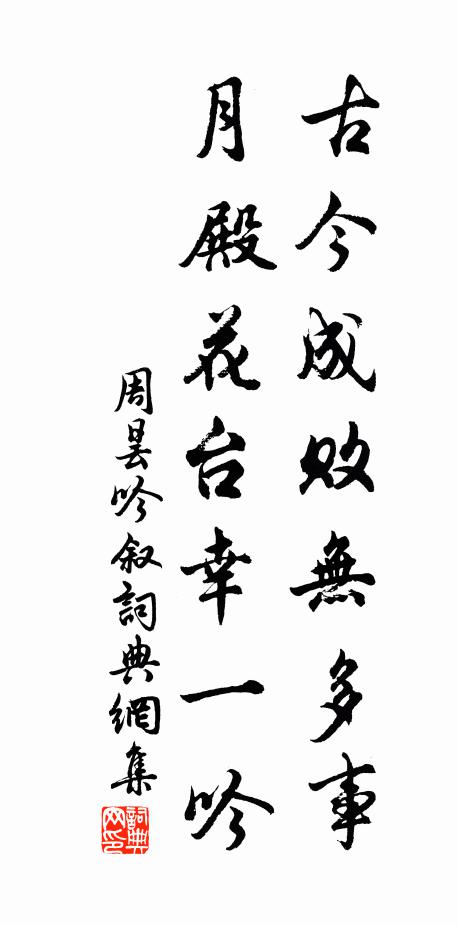 古今成敗無多事
月殿花台幸一吟
周曇吟叙詞典網集
詞典網印